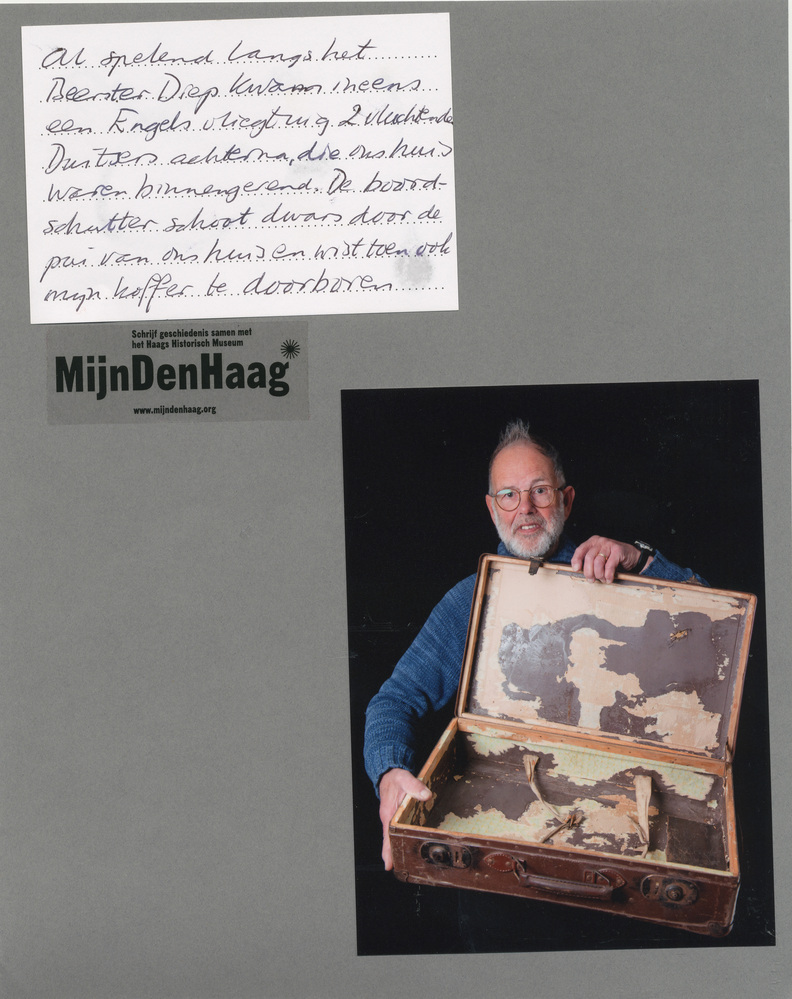 Al spelend langs het
Beerster Diep kwam ineens
een Engels vliegtuig 2 vluchtende
Duitsers achterna, die ons huis
waren binnengerend. De boord-
schutter schoot dwars door de
pui van ons huis en wist toen ook
mijn koffer te doorboren
Schrijf geschiedenis samen met
het Haags Historisch Museum
MijnDenHaag
www.mijndenhaag.org